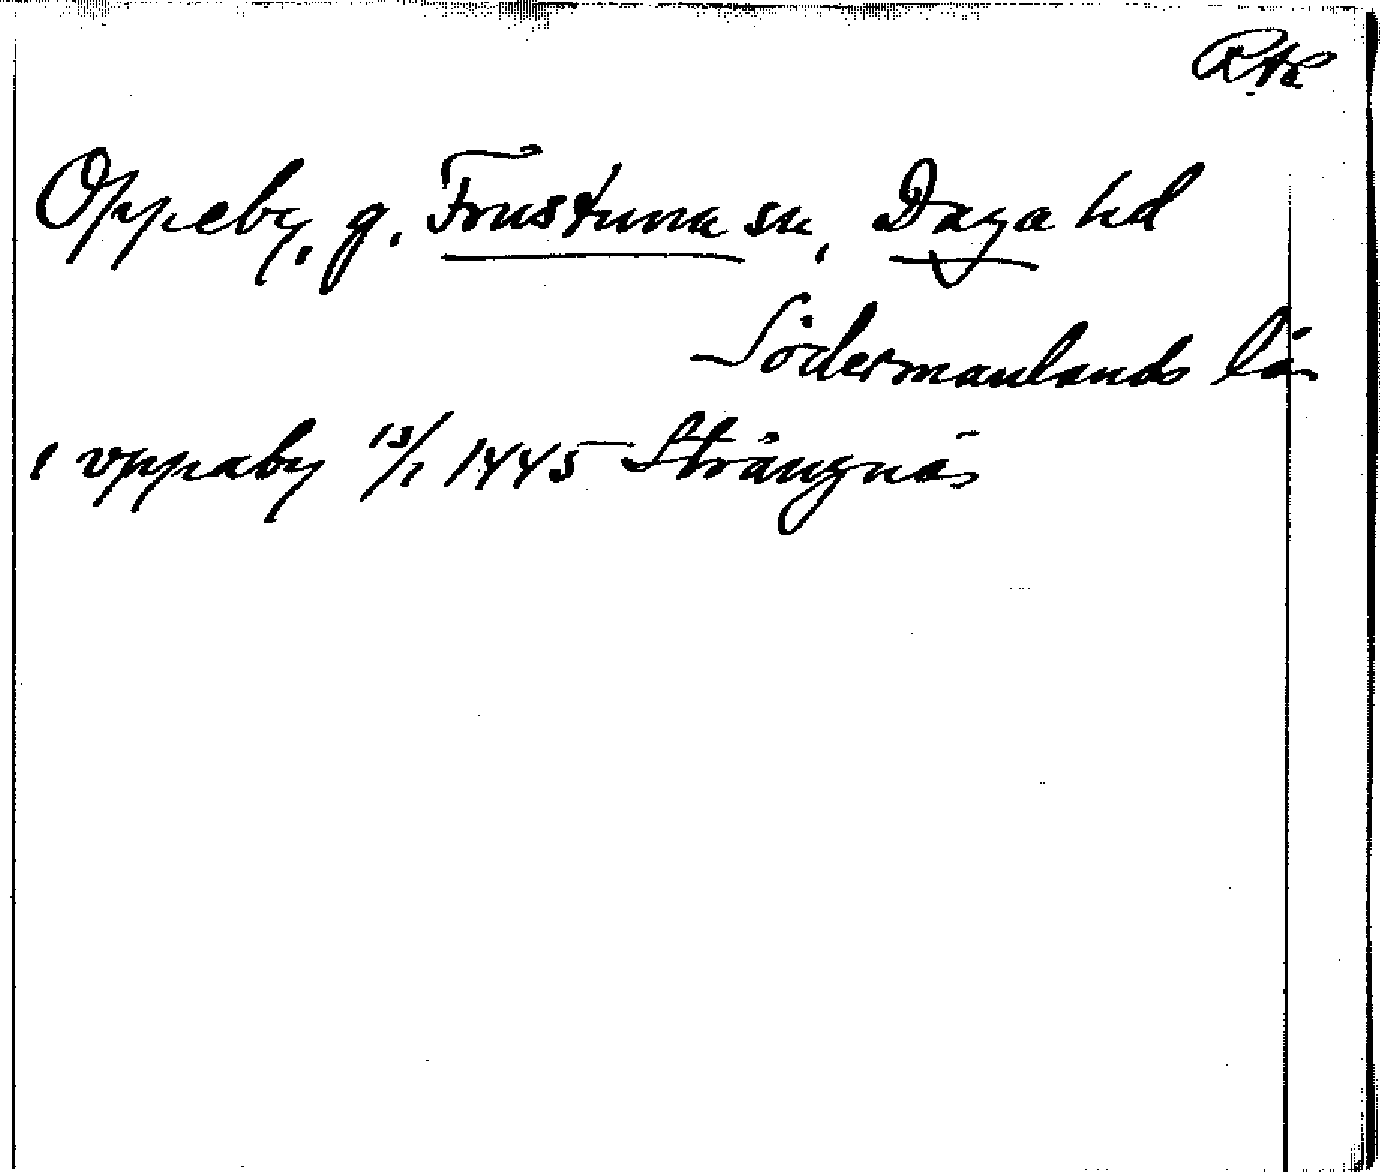 Rtk
Oppeby, g. Frustuna sn, Daga hd
Södermanlands län
i vppaby 13/1 1445 Strängnäs